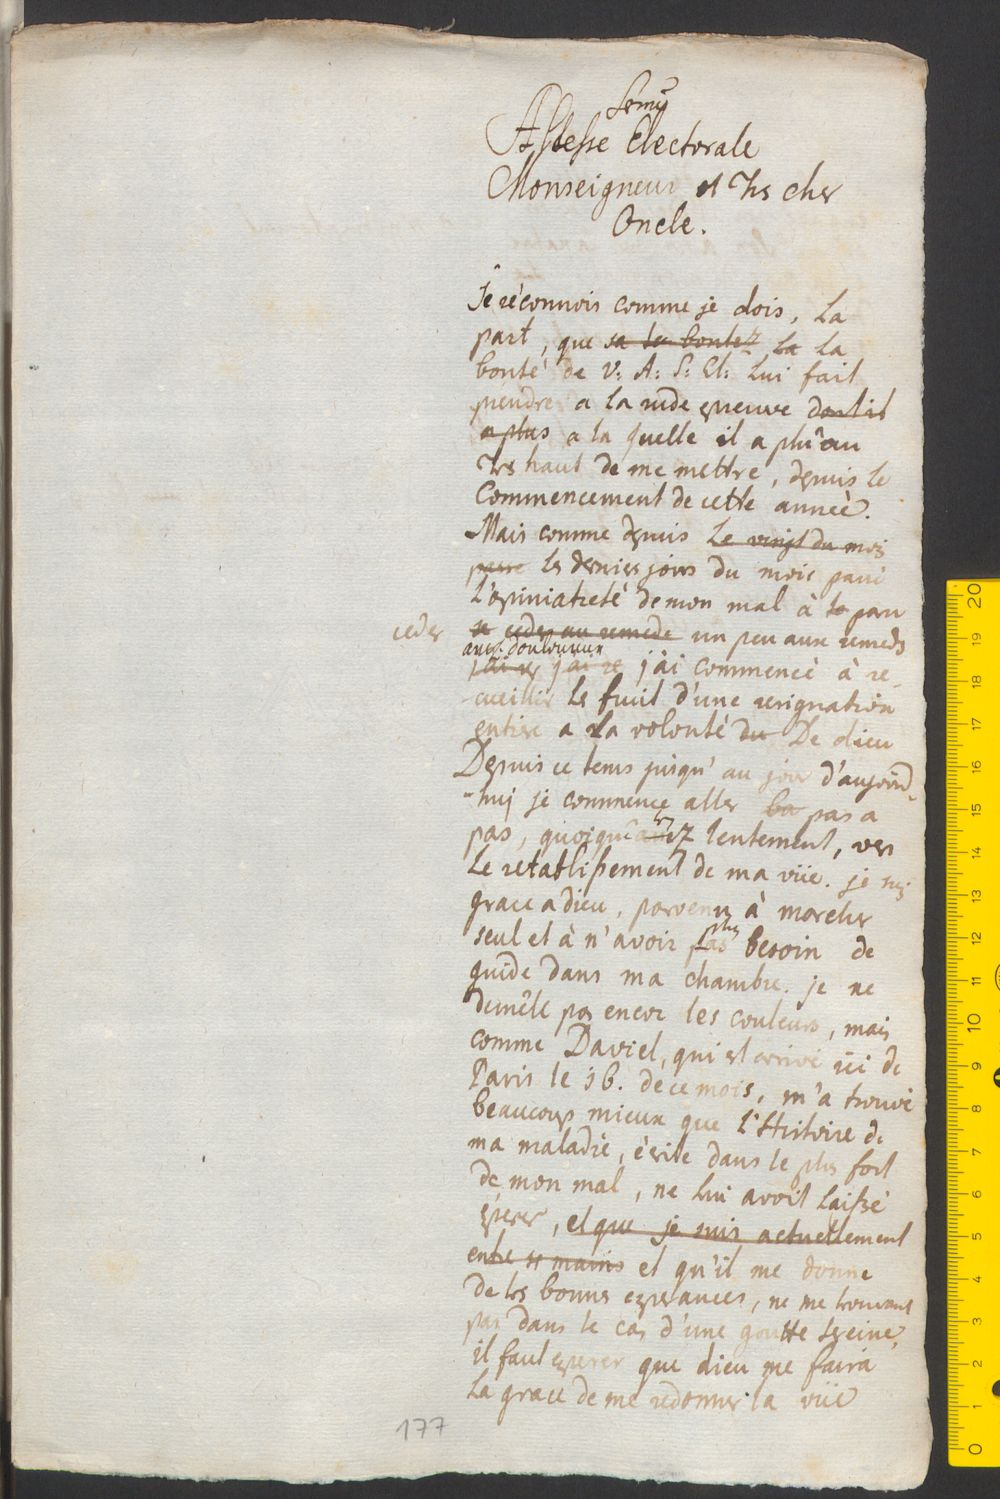 Sermé
Altesse Electorale
Monseigneur et Trs cher
Oncle.
Je réconnois comme je dois, La
part, que sa la bontez La La
bonté de V: A: S: El: Lui fait
prendre a la rude epreuve dont il
a plus a la quelle il a plû au
Trs haut de me mettre, depuis le
Commencement de cette année.
Mais comme depuis Le vingt du mois
passe les derniers jours du mois passé
L'opiniatreté de mon mal à le paru
ceder
se ceder au remede un peu aux remeds
assez douloureux
j'ai re j'ai re j'ai commencé à re-
cueillir Le fruit d'une resignation
entiere a La volonté du De dieu
Depuis ce tems jusqu' au jour d'aujourd-
-huj je commence aller ba pas a
pas, quoiqu' assez lentement, vers
Le retablissement de ma vüe. je suis
grace a Dieu, parvenu à marcher
seul et à n'avoir pas plus besoin de
guide dans ma chambre. je ne
demêle pas encor les couleurs, mais
comme Daviel, qui est arrivé ici de
Paris le 16. de ce mois, m'a trouvé
beaucoup mieux que L'Histoire de
ma maladie, écrite dans le plus fort
de mon mal, ne lui avoit laissé
esperer, et que je suis actuellement
entre ses mains et qu'il me donne
de trs bonnes esperances, ne me trouvant
pas dans le cas d'une goutte sereine,
il faut esperer que dieu me faira
La grace de me redonner la vüe
177